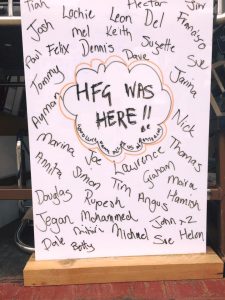 Tian Hector Jim
Lochie Leon Del Francisco
Josh Mel Keith
Paul Felix Dennis Suzette Sue
Dave
Tommy Janina
Ayman HFG WAS
HERE !! Nick
Marina Joe Lawrence Thomas
Annita Simon Graham Moira
Douglas Tim Angus Hamish
Rupesh
Jegan Mohammed John x2
Michael Sue Helen
Dave Betty